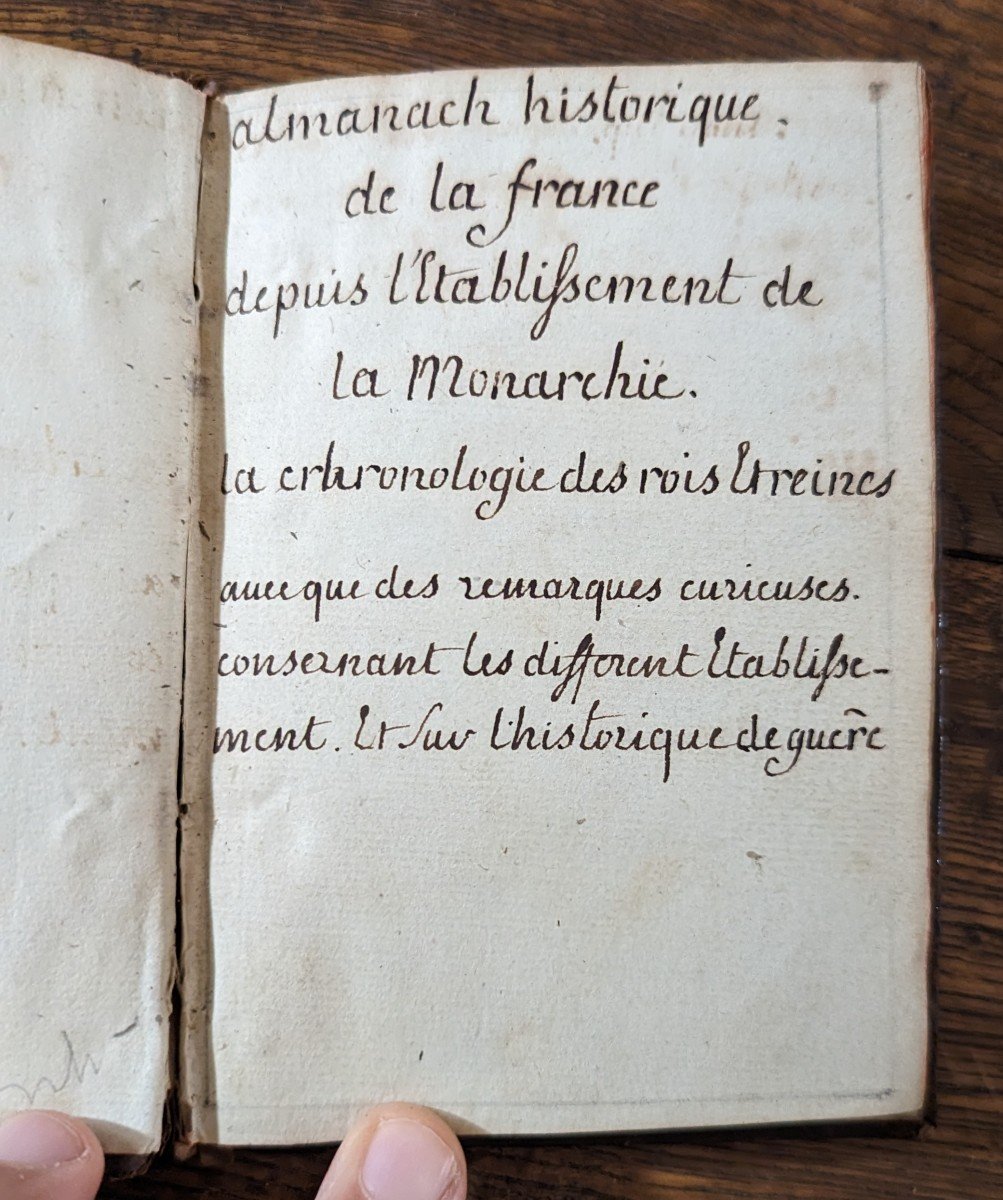 almanach historique.
de la france
depuis l'Etablissement de
la Monarchie.
la crhronologie des rois Et reines
avecque des remarques curieuses.
consernant les different Etablisse-
ment. Et Sur l'historique de guerre